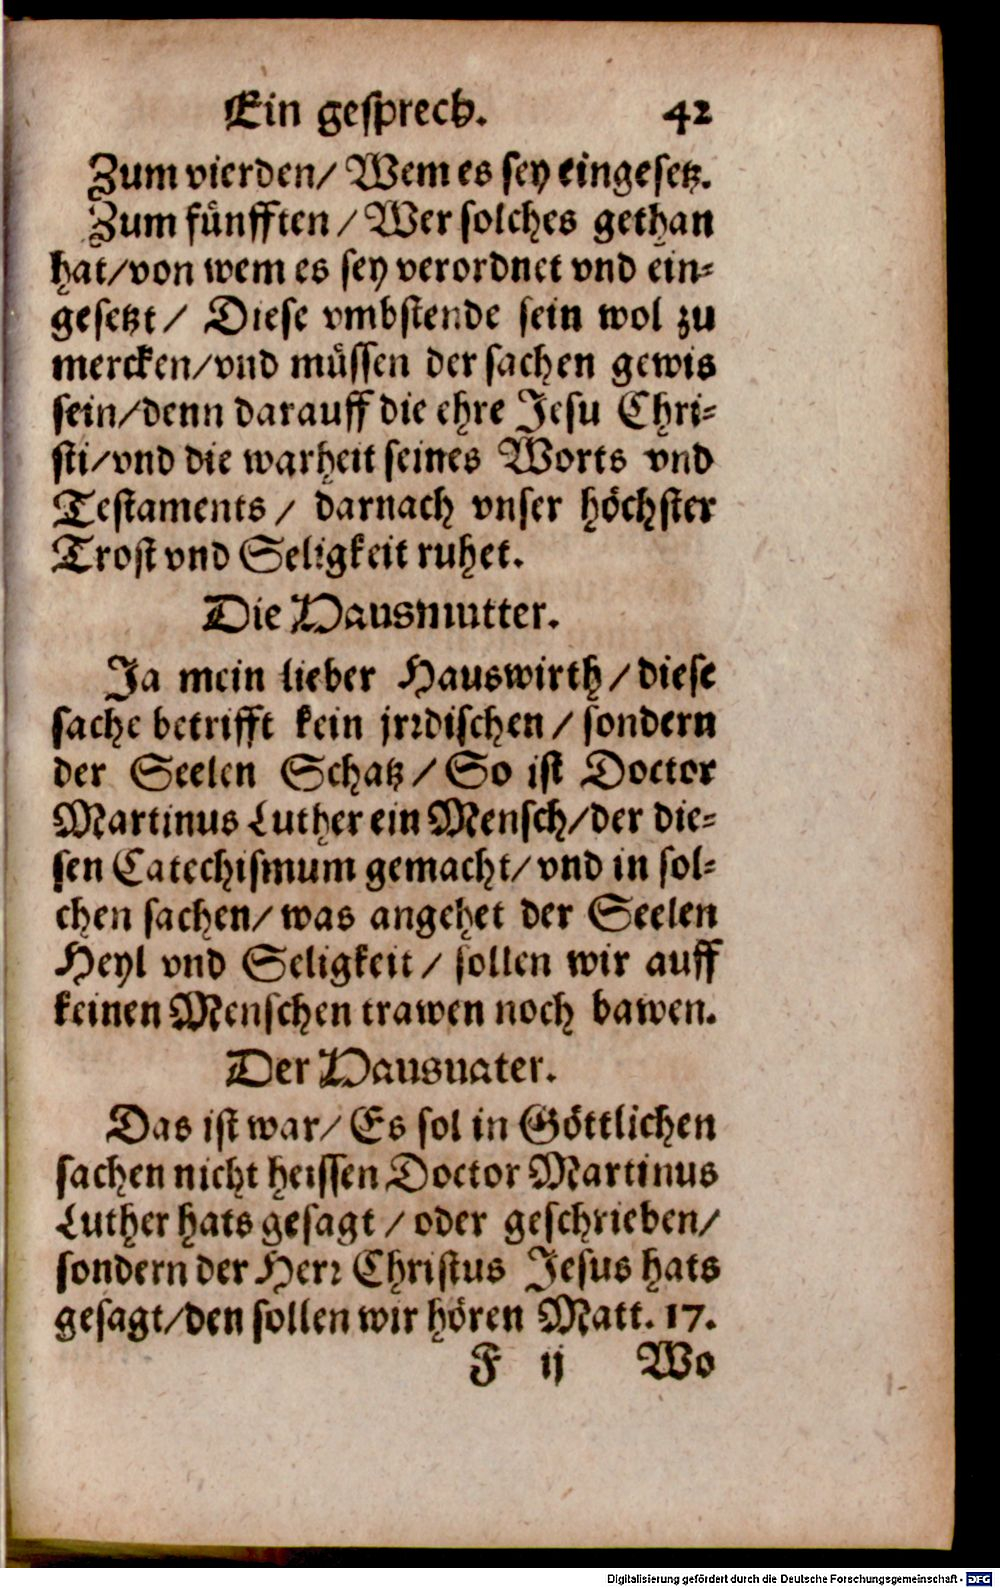 Ein gesprech. 42
Zum vierden/ Wem es sey eingesetz.
Zum fünfften / Wer solches gethan
hat/von wem es sey verordnet vnd ein-
gesetzt / Diese vmbstende sein wol zu
mercken/vnd müssen der sachen gewis
sein/denn darauff die ehre Jesu Chri-
sti/vnd die warheit seines Worts vnd
Testaments / darnach vnser höchster
Trost vnd Seligkeit ruhet.
Die Hausmutter.
Ja mein lieber Hauswirth / diese
sache betrifft kein jrrdischen / sondern
der Seelen Schatz / So ist Doctor
Martinus Luther ein Mensch/der die-
sen Catechismum gemacht/ vnd in sol-
chen sachen/ was angehet der Seelen
Heyl vnd Seligkeit / sollen wir auff
keinen Menschen trawen noch bawen.
Der Hausuater.
Das ist war/ Es sol in Göttlichen
sachen nicht heissen Doctor Martinus
Luther hats gesagt / oder geschrieben/
sondern der Herr Christus Jesus hats
gesagt/den sollen wir hören Matt. 17.
F ij Wo
Digitalisierung gefördert durch die Deutsche Forschungsgemeinschaft - DFG